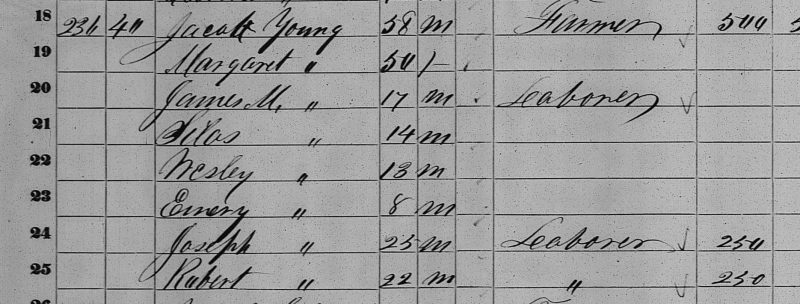 18 Jacob Young 58 m Farmer 500
19 Margaret " 50 f
20 James M. " 17 m Leaborer
21 Silas " 14 m
22 Wesley " 13 m
23 Emery " 8 m
24 Joseph " 25 m Leaborer 250
25 Robert " 22 m " 250